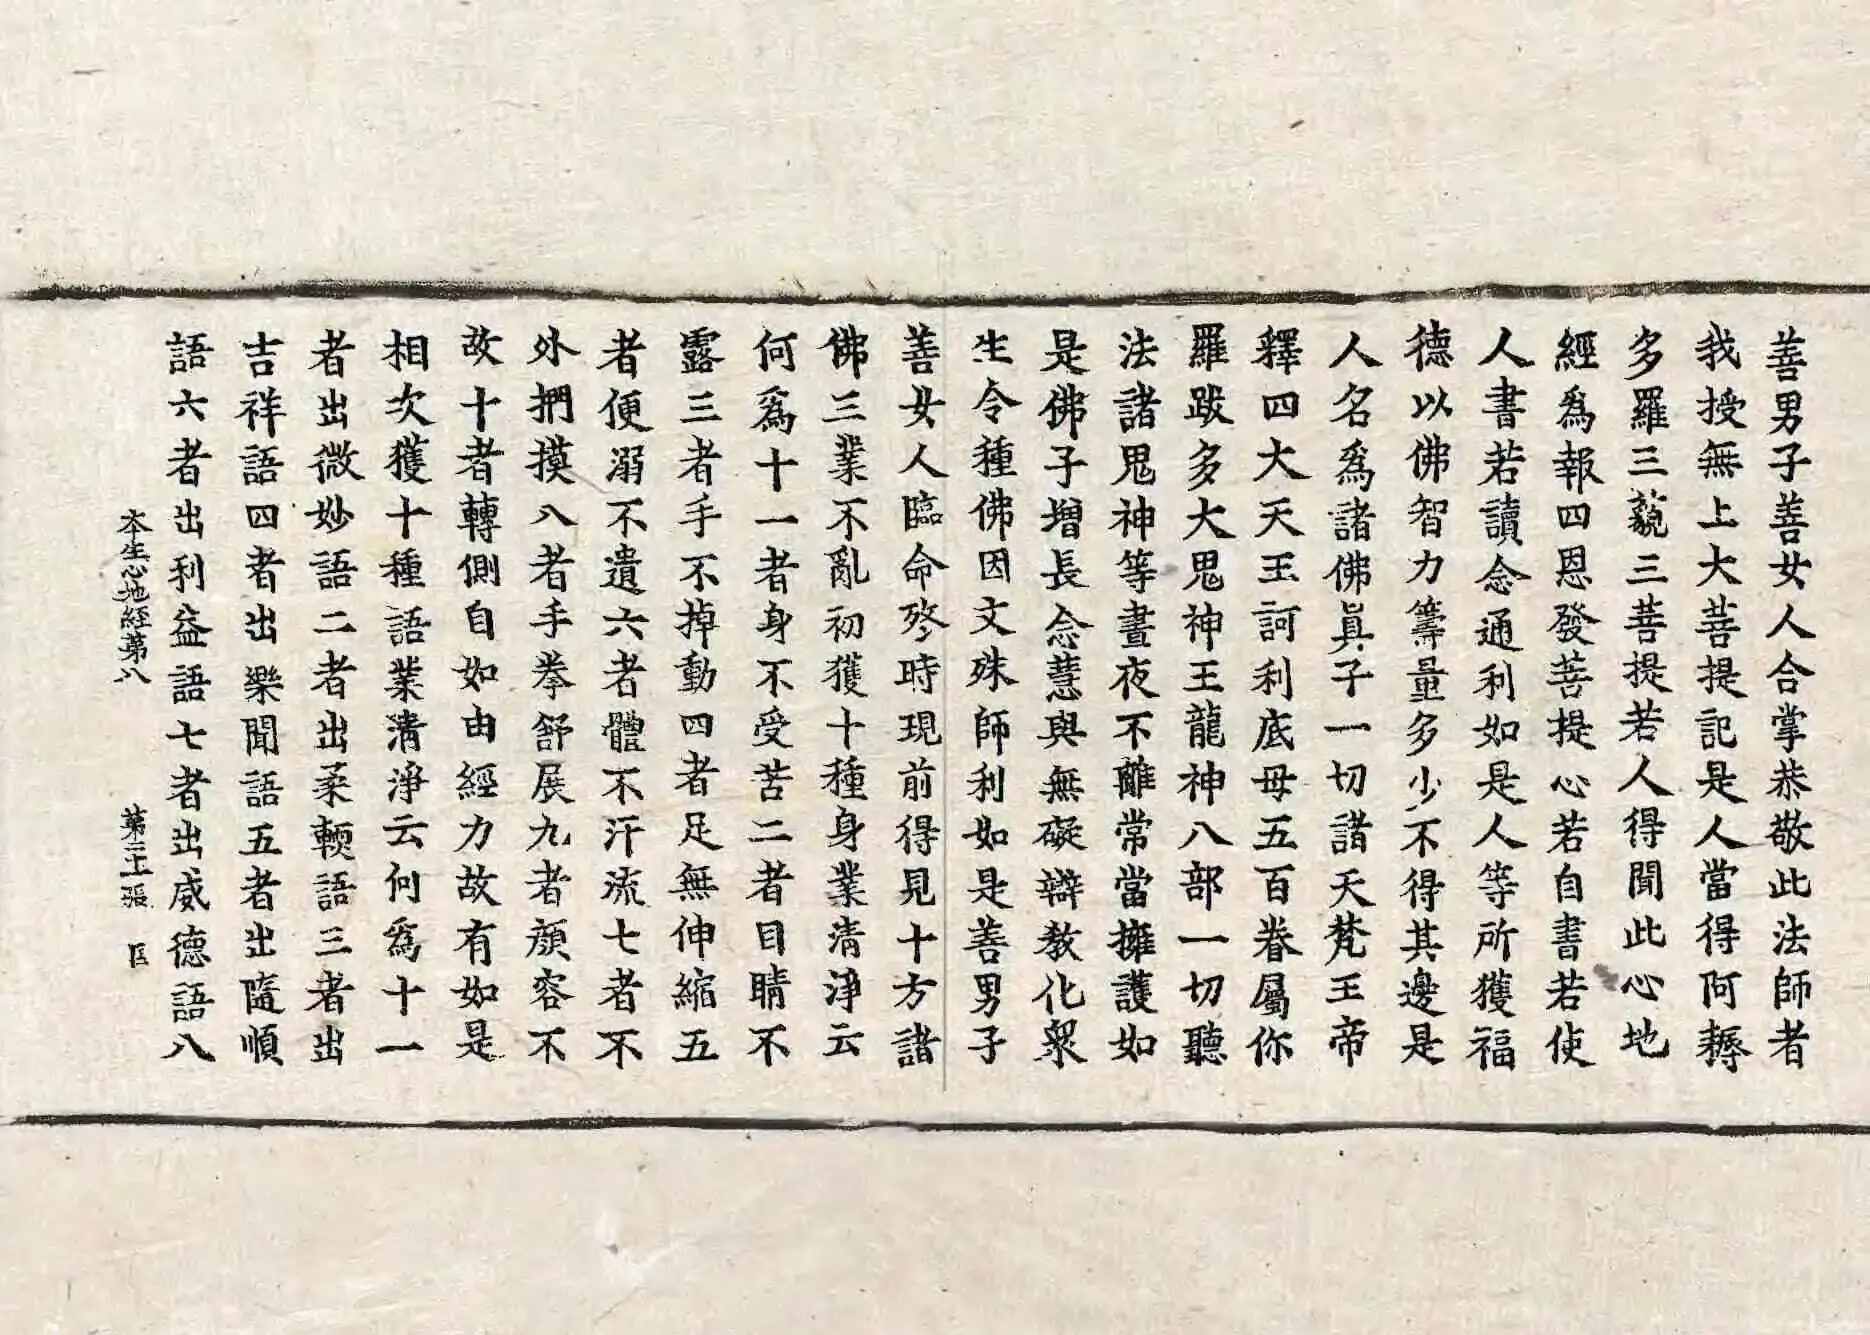 善男子善女人合掌恭敬此法師者
我授無上大菩提記是人當得阿耨
多羅三藐三菩提若人得聞此心地
經為報四恩發菩提心若自書若使
人書若讀念通利如是人等所獲福
德以佛智力籌量多少不得其邊是
人名為諸佛真子一切諸天梵王帝
釋四大天王訶利底母五百眷屬你
羅跋多大鬼神王龍神八部一切聽
法諸鬼神等晝夜不離常當擁護如
是佛子增長念慧與無礙辯教化眾
生令種佛因文殊師利如是善男子
善女人臨命終時現前得見十方諸
佛三業不亂初獲十種身業清淨云
何為十一者身不受苦二者目睛不
露三者手不掉動四者足無伸縮五
者便溺不遺六者體不汗流七者不
外捫摸八者手拳舒展九者顏容不
改十者轉側自如由經力故有如是
相次獲十種語業清淨云何為十一
者出微妙語二者出柔軟語三者出
吉祥語四者出樂聞語五者出隨順
語六者出利益語七者出威德語八
本生心地經第八 第二十張 匡